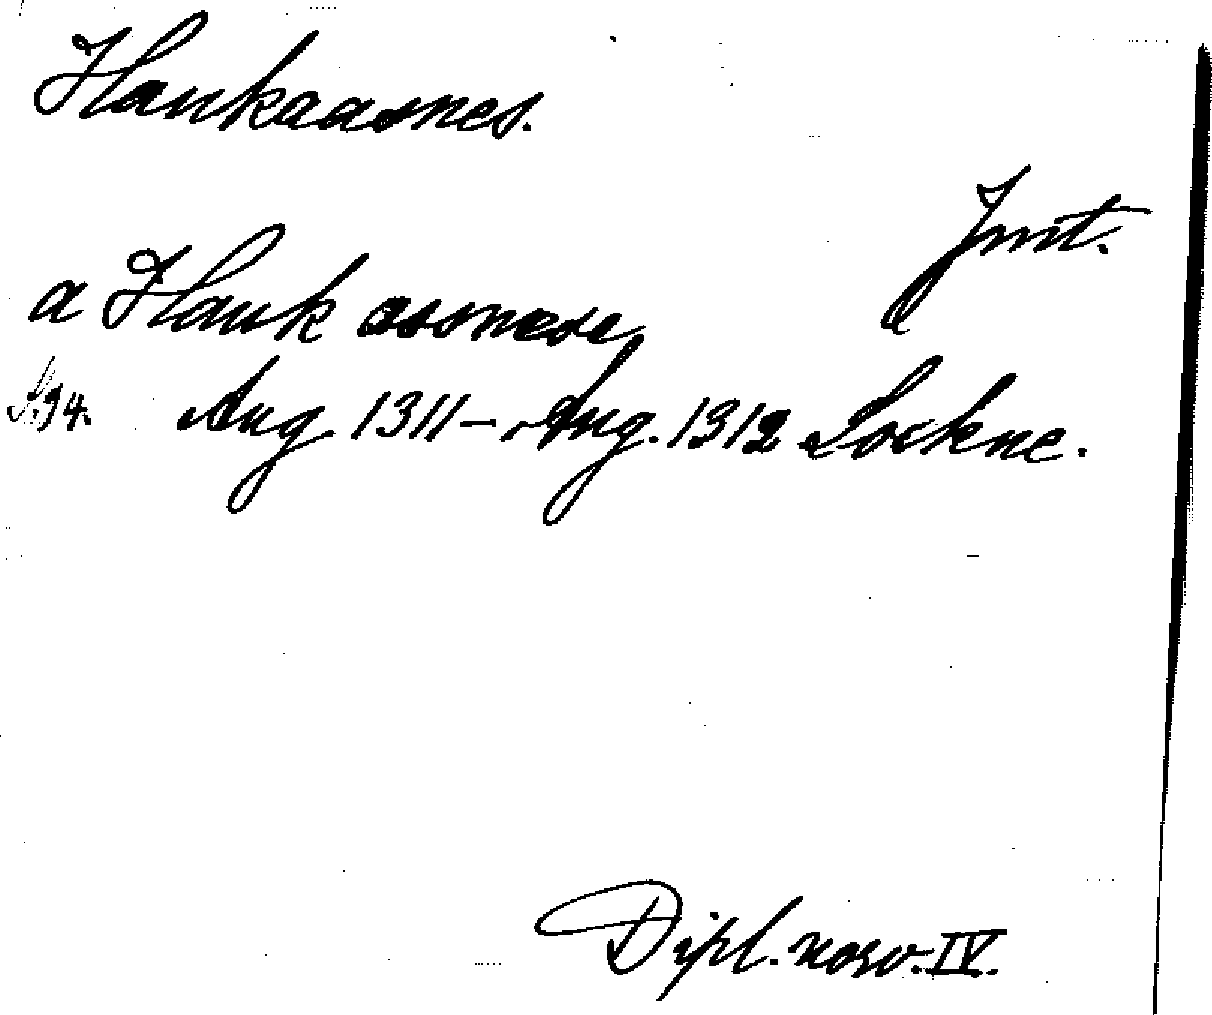 Haukaasnes.
Jmt.
a Hauk assnese
S.94. Aug. 1311 – Aug. 1312 Lockne.
Dipl. norv. IV.